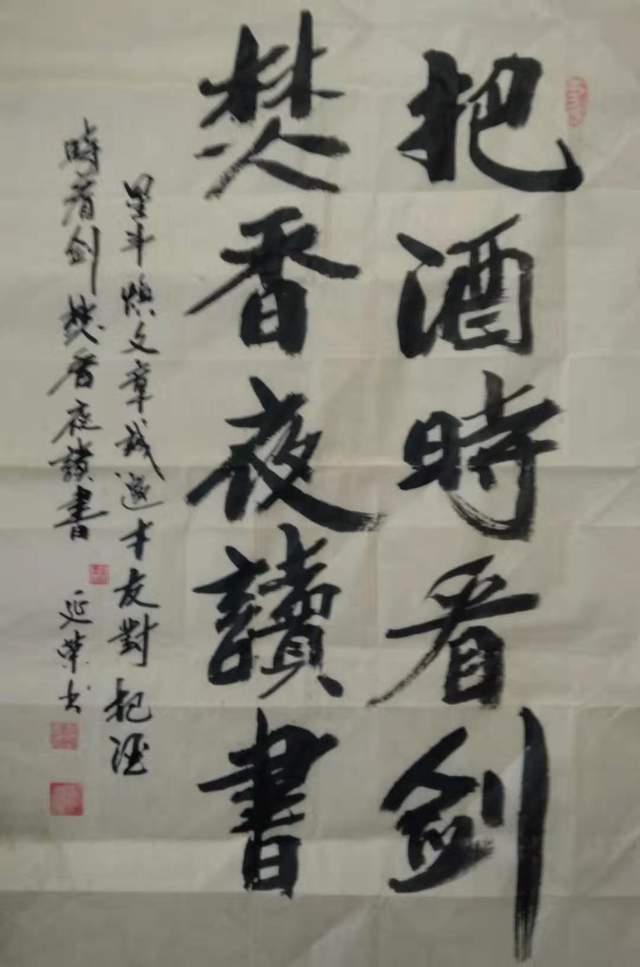 把酒時看劍
焚香夜讀書
星斗煥文章 我邀才友對 把酒
時看劍 焚香夜讀書
延榮书